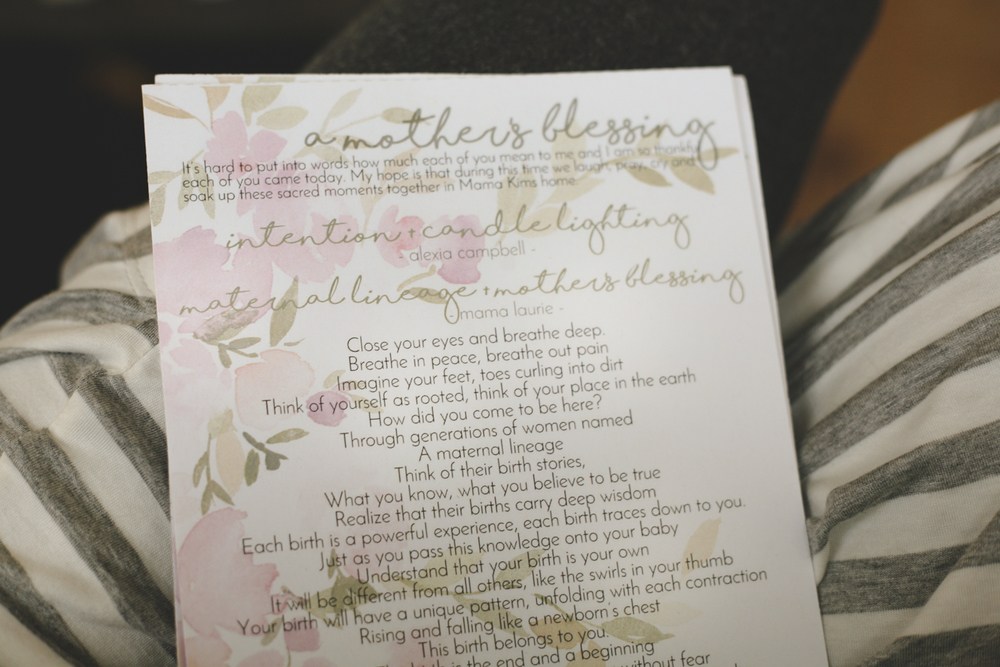 a mother's blessing
It's hard to put into words how much each of you mean to me and I am so thankful
each of you came today. My hope is that during this time we laugh, pray, cry and
soak up these sacred moments together in Mama Kims home.
intention + candle lighting
- alexia campbell -
maternal lineage + mother's blessing
- mama laurie -
Close your eyes and breathe deep.
Breathe in peace, breathe out pain
Imagine your feet, toes curling into dirt
Think of yourself as rooted, think of your place in the earth
How did you come to be here?
Through generations of women named
A maternal lineage
Think of their birth stories,
What you know, what you believe to be true
Realize that their births carry deep wisdom
Each birth is a powerful experience, each birth traces down to you.
Just as you pass this knowledge onto your baby
Understand that your birth is your own
It will be different from all others, like the swirls in your thumb
Your birth will have a unique pattern, unfolding with each contraction
Rising and falling like a newborn's chest
This birth belongs to you.
birth is the end and a beginning
without fear